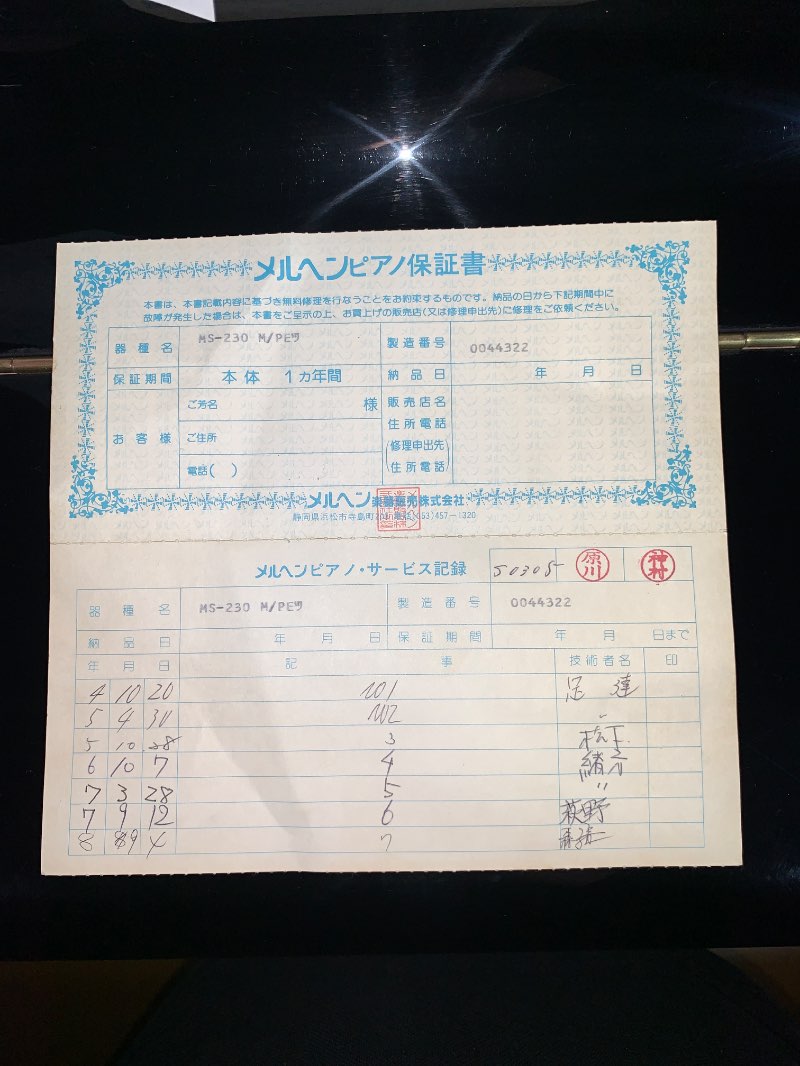 メルヘンピアノ保証書
本書は、本書記載内容に基づき無料修理を行なうことをお約束するものです。納品の日から下記期間中に
故障が発生した場合は、本書をご呈示の上、お買上げの販売店(又は修理申出先)に修理をご依頼ください。
器種名 MS-230 M/PEワ 製造番号 0044322
保証期間 本体 1ヵ年間 納品日 年 月 日
お客様 ご芳名 様
ご住所
電話( )
販売店名
住所電話
(修理申出先)
(住所電話)
メルヘン楽器販売株式会社
静岡県浜松市寺島町 電話(053)457-1320
メルヘンピアノ・サービス記録 50305 原川 神村
器種名 MS-230 M/PEワ 製造番号 0044322
納品日 年 月 日 保証期間 年 月 日まで
年 月 日 記事 技術者名 印
4 10 20 101 足達
5 4 30 102 〃
5 10 28 3 松下
6 10 7 4 緒方
7 3 28 5 〃
7 9 12 6 萩野
8 9 4 7